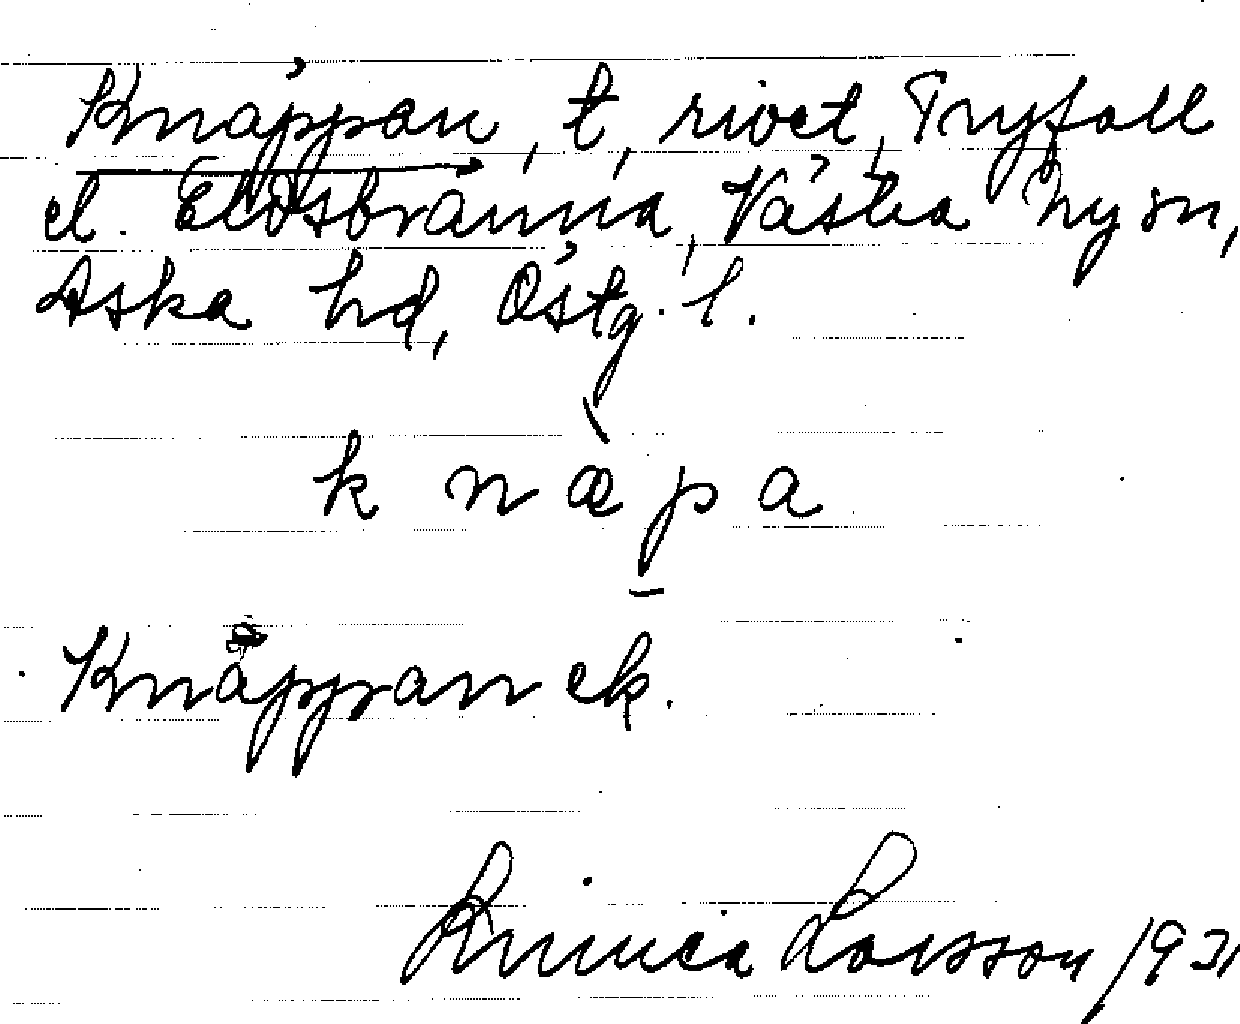 Knäppan, t, rivet, Tryfall
el. Eldsbränna, Västra Ny sn,
Aska hd, Östg. l.
knæpa
Knäppan ek.
Linnea Larsson 1931